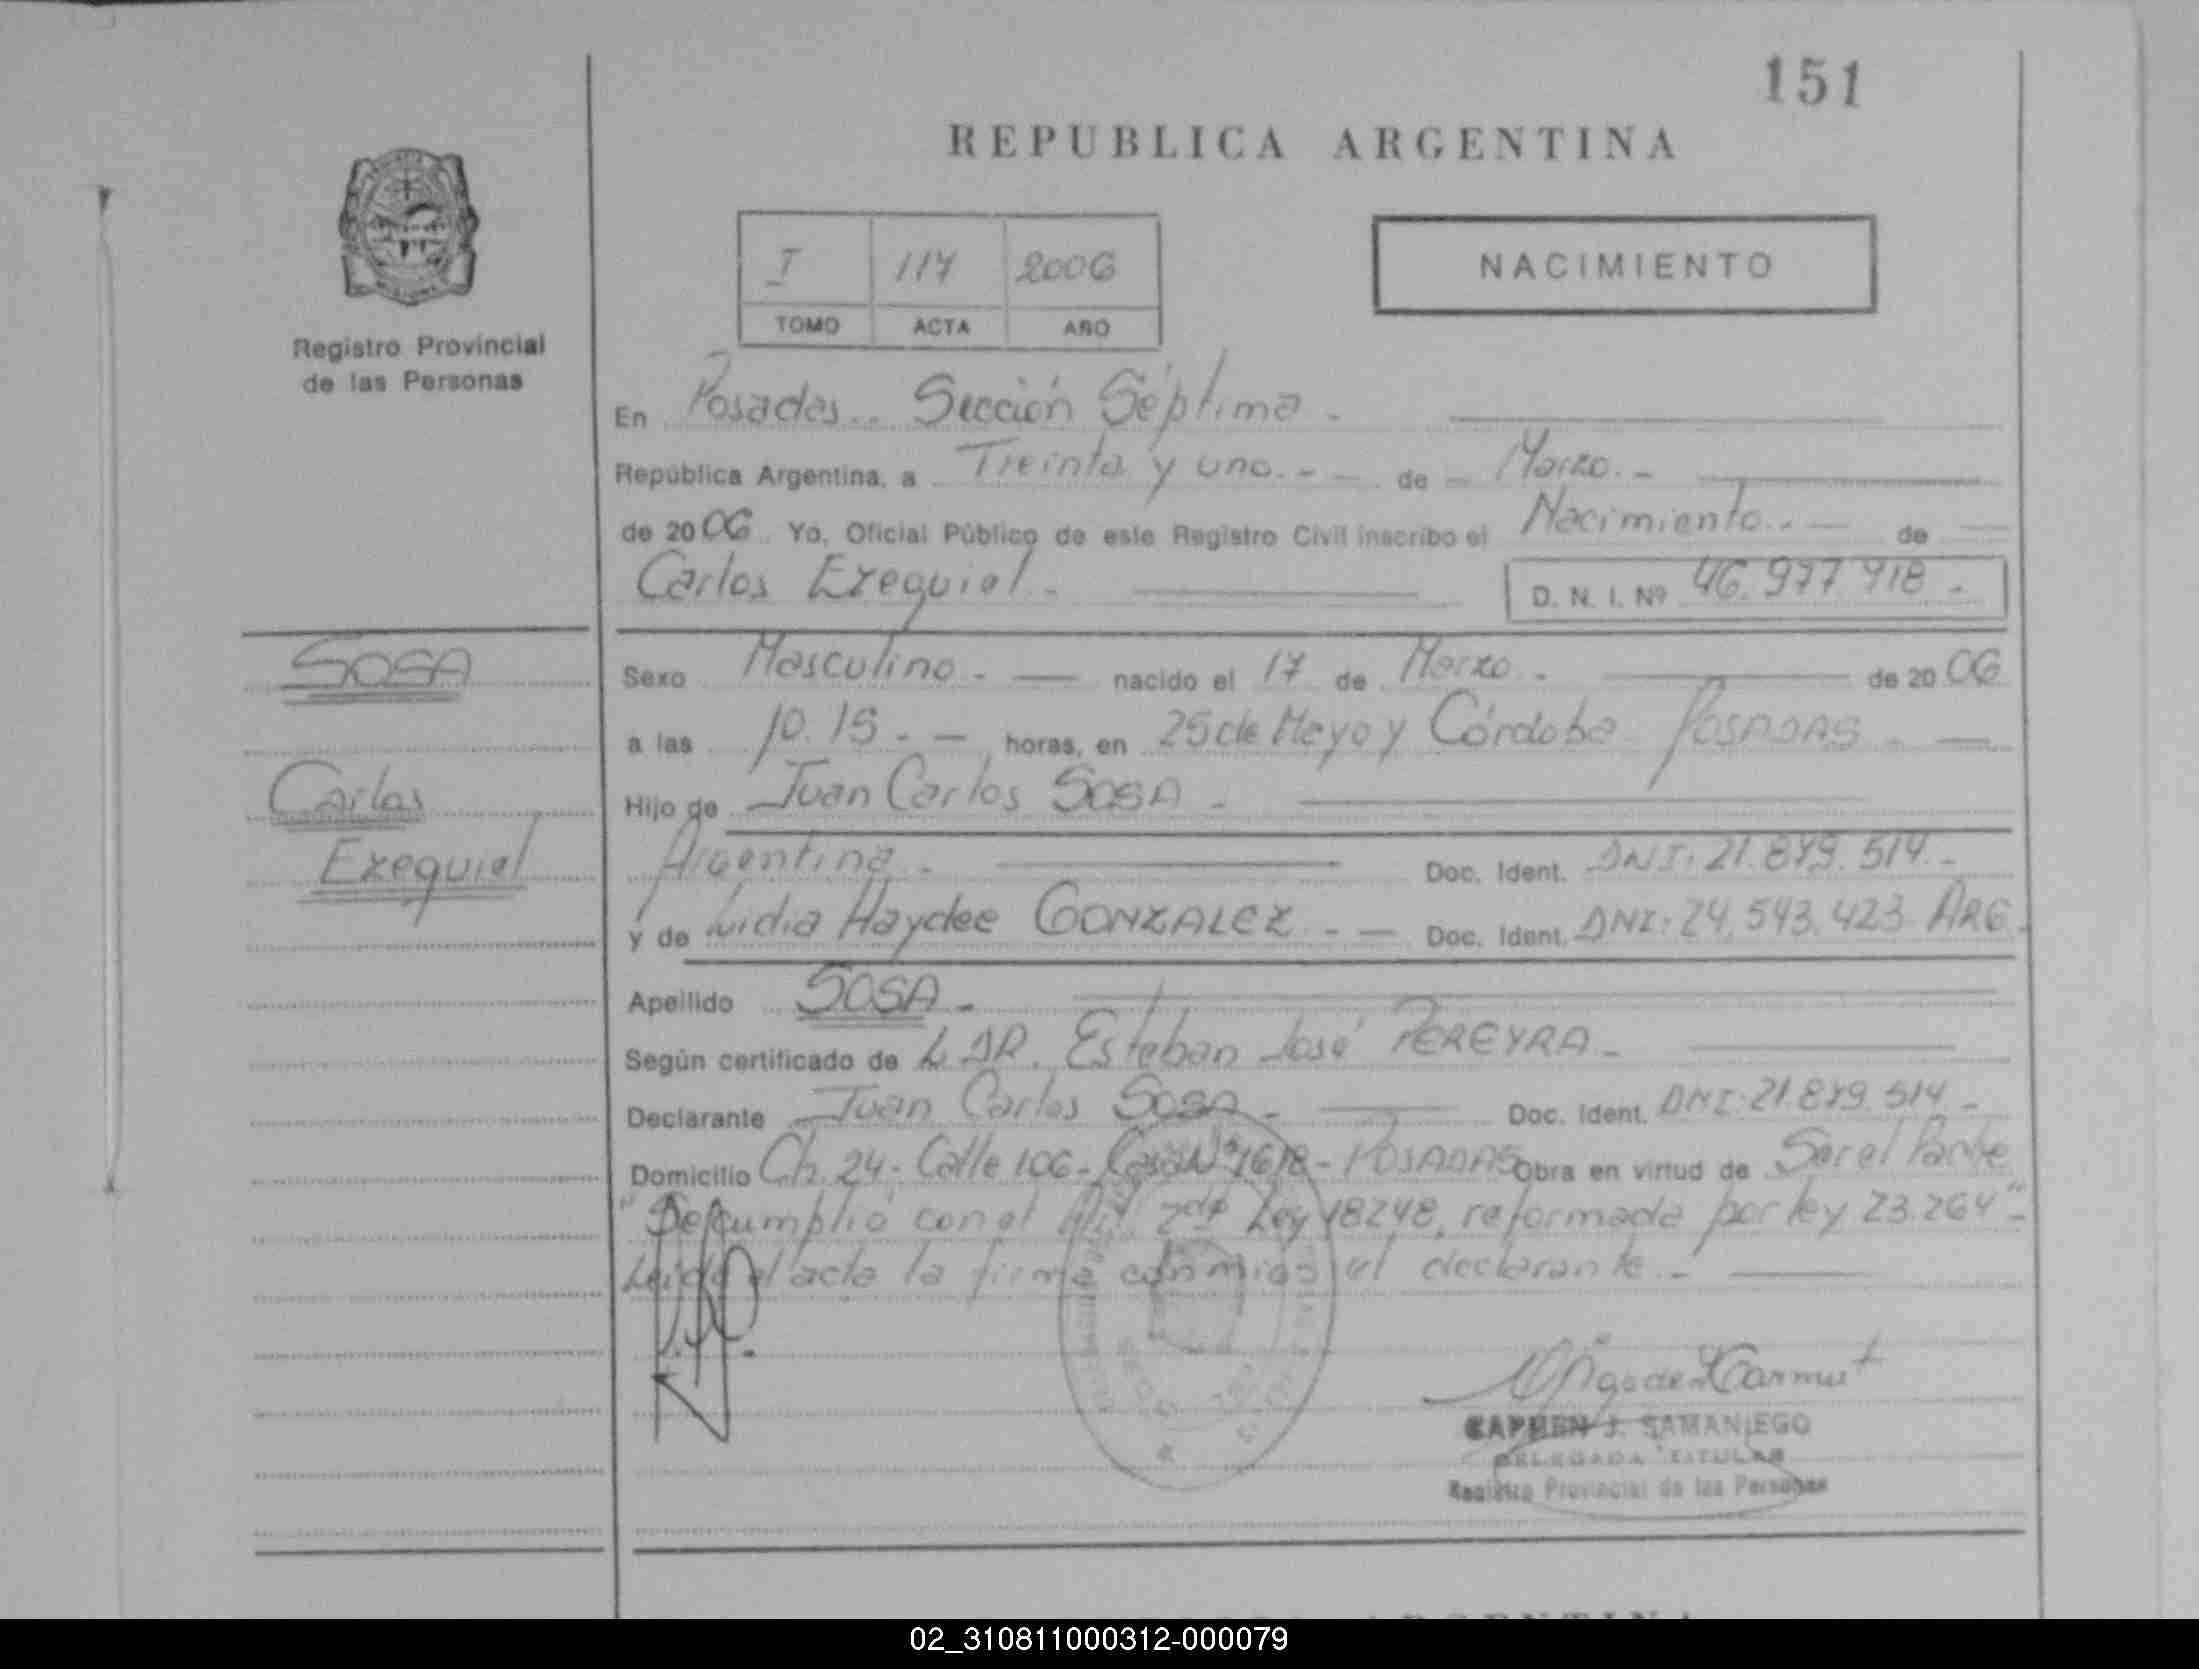 151
REPUBLICA ARGENTINA
I 117 2006
TOMO ACTA AÑO
NACIMIENTO
Registro Provincial
de las Personas
En Posadas.. Sección Séptima.
República Argentina, a Treinta y uno.- - de - Marzo.-
de 2006 Yo, Oficial Público de este Registro Civil inscribo el Nacimiento.- de
Carlos Exequiel.- D. N. I. Nº 46.977.918.-
SOSA
Carlos
Exequiel
Sexo Masculino.- nacido el 17 de Marzo.- de 2006
a las 10.15.- - horas, en 25 de Mayo y Córdoba POSADAS.-
Hijo de Juan Carlos SOSA.-
Argentina.- Doc. Ident. DNI. 21.879.514.-
y de Lidia Haydee GONZALEZ.- - Doc. Ident. DNI. 24.543.423 ARG.
Apellido SOSA.-
Según certificado de L DR. Esteban José PEREYRA.-
Declarante Juan Carlos SOSA.- Doc. Ident. DNI. 21.879.514.-
Domicilio Ch. 24- Calle 106- Casa Nº 1618- POSADAS Obra en virtud de Ser el Padre
"Se cumplió con el Art. 2do Ley 18248, reformada por ley 23.264"-
Leida el acta la firma conmigo el declarante.-
CARMEN J. SAMANIEGO
DELEGADA TITULAR
Registro Provincial de las Personas
REPUBLICA ARGENTINA
02_310811000312-000079